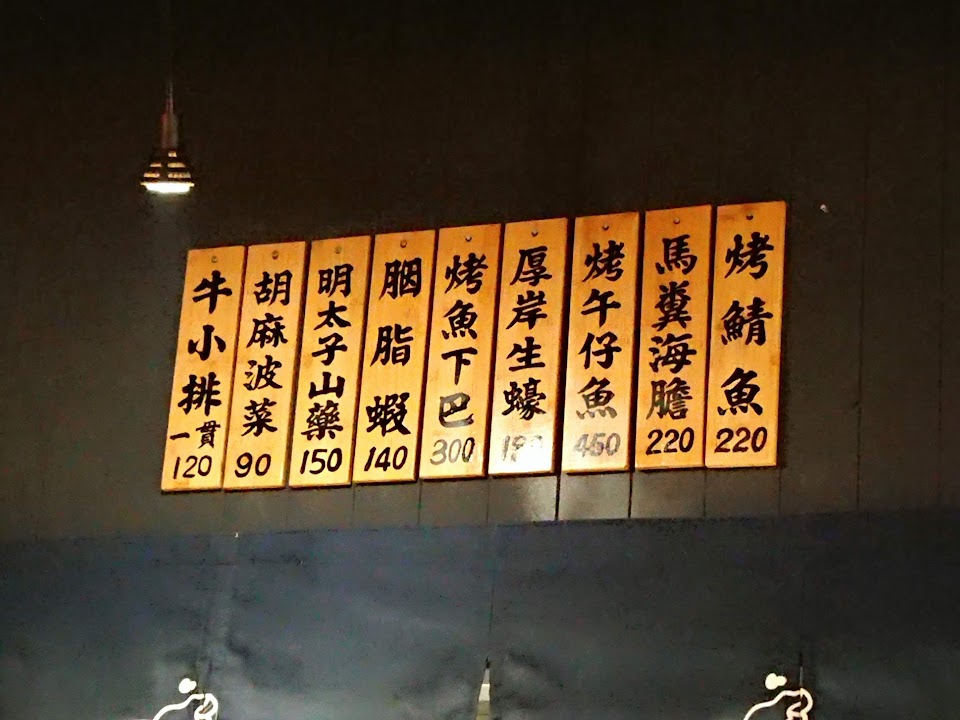 烤鯖魚 220
馬糞海膽 220
烤午仔魚 450
厚岸生蠔
烤魚下巴 300
胭脂蝦 140
明太子山藥 150
胡麻波菜 90
牛小排 一貫 120